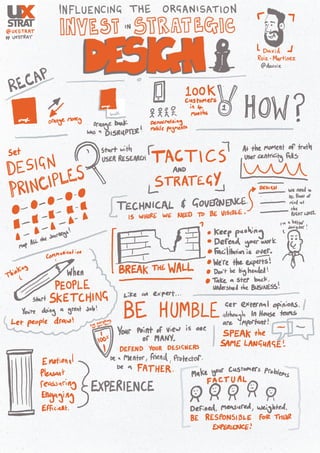 UX
STRAT
@UXSTRAT
# UXSTRAT
INFLUENCING THE ORGANISATION
INVEST IN STRATEGIC
DESIGN
David
Ruiz-Martinez
RECAP
orange money
orange bank
was a DISRUPTER!
Democratizing
mobile payments
100K
Customers
in 4
months
HOW?
Set
DESIGN
PRINCIPLES
Map all the Journeys!
Start with
USER RESEARCH
TACTICS
AND
STRATEGY
At the moment of truth
user centricity fails
TECHNICAL & GOVERNENCE
IS WHERE WE NEED TO BE VISIBLE.
DESIGN
We need to
be
at
the
RIGHT LEVEL
I'm a
designer!
Thinking
Communication
When
PEOPLE
Start SKETCHING
You're doing a great job!
Let people draw!
BREAK THE WALL
Keep pushing
Defend your work
Facilitation is over.
We're the experts!
Don't be big headed!
Take a step back.
Understand the BUSINESS!
Like an expert...
BE HUMBLE
GET EXTERNAL opinions.
although In House teams
are important!
SPEAK the
SAME LANGUAGE!
1
100
Your Point of view is one
of MANY.
DEFEND YOUR DESIGNERS
be a Mentor, friend, Protector.
be a FATHER.
Emotional
Pleasant
reassuring
Engaging
Efficient.
EXPERIENCE
Make your Customer's Problems
FACTUAL
Defined, measured, weighted.
BE RESPONSIBLE FOR THEIR
EXPERIENCE!